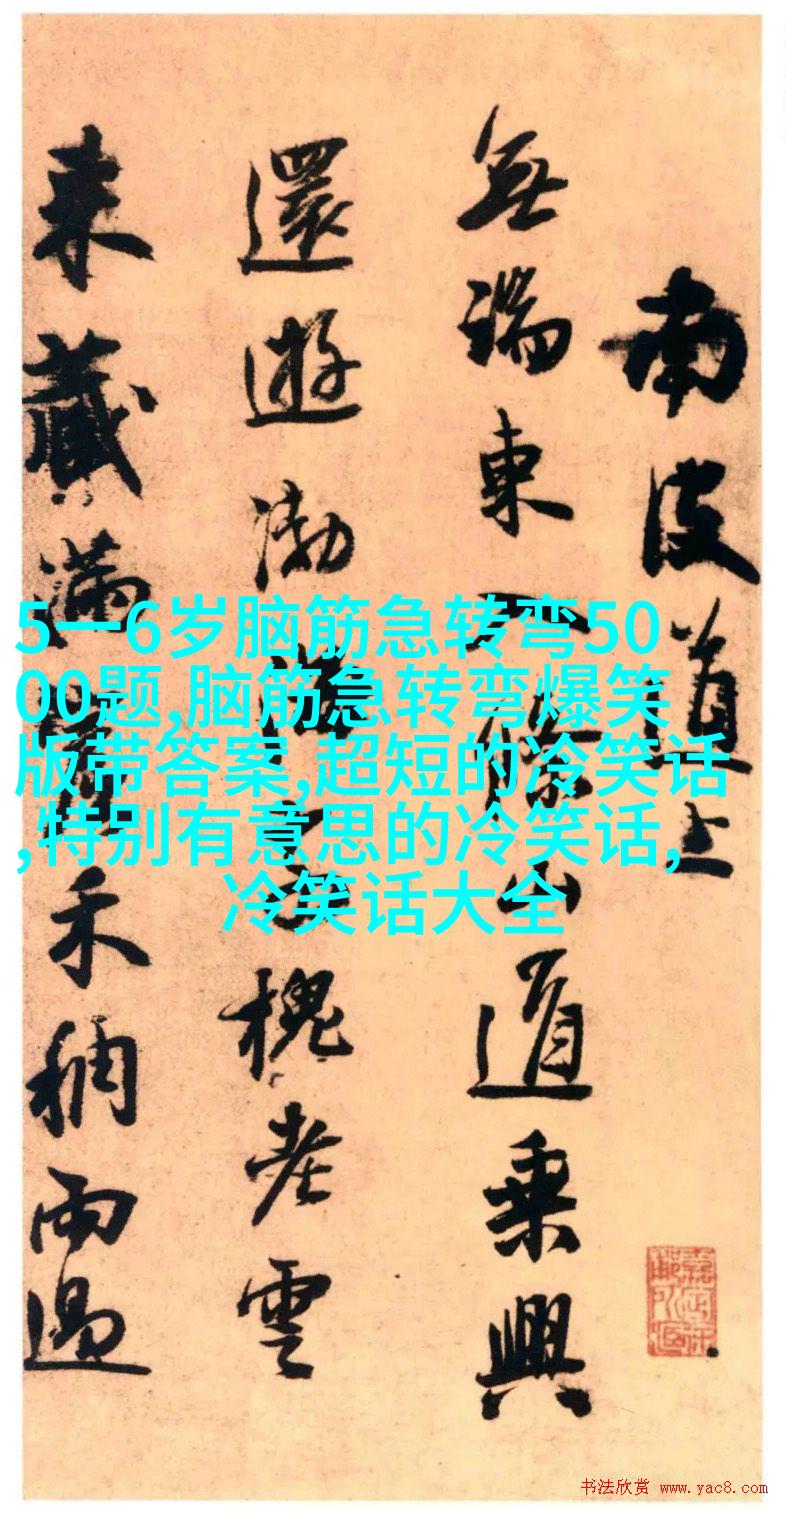 南皮道上
無端東條山道乘興
還遊渤海槐老雲
來藏滿禾稠雨過
5一6岁脑筋急转弯50
00题,脑筋急转弯爆笑
版带答案,超短的冷笑话
,特别有意思的冷笑话,
冷笑话大全
书法欣赏 www.yac8.com